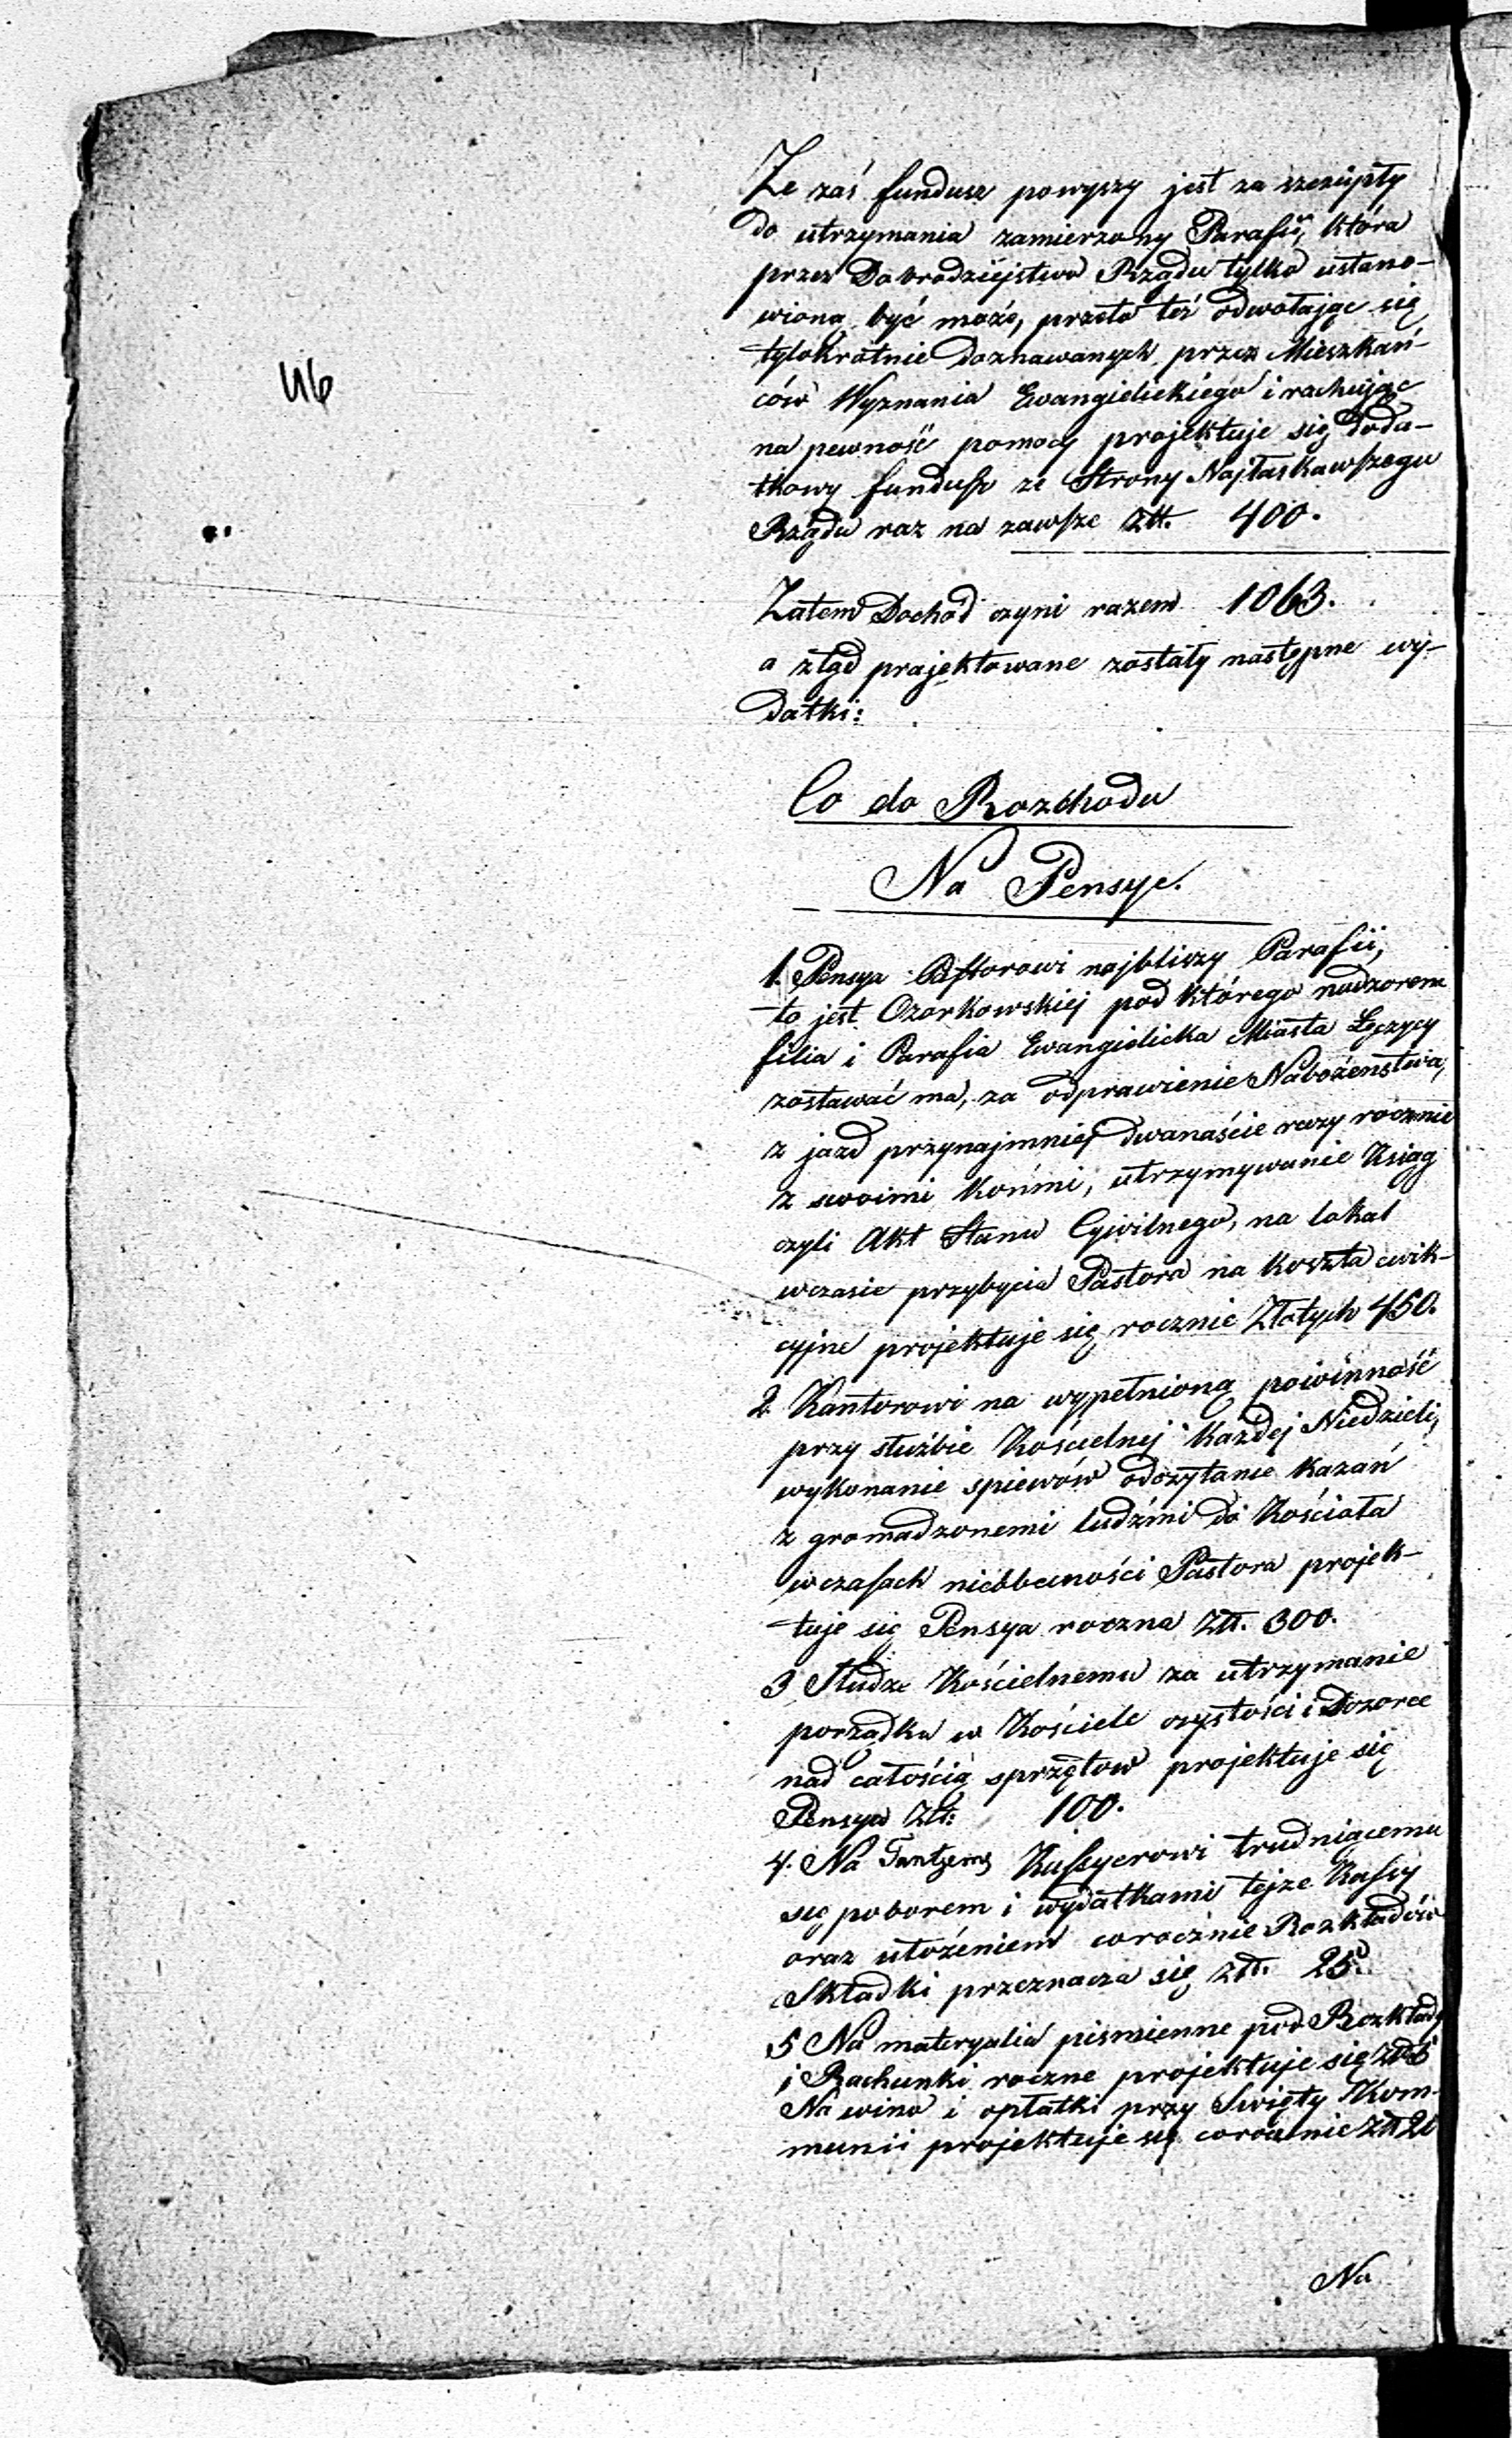 46
Ze zaś fundusz powyszy jest za szczupły
do utrzymania zamierzony Parafii, która
przez Dobrodziejstwo Rządu tylko ustano-
wioną być może, przeto też odwołając się
tylokrotnie doznawanych przez Mieszkań-
ców Wyznania Ewangielickiego i rachując
na pewność pomocy projektuje się doda-
tkowy fundusz ze Strony Najłaskawszego
Rządu raz na zawsze Złł. 400.
Zatem Dochód czyni razem 1063.
a ztąd projektowane zostały następne wy-
datki:
Co do Rozchodu
Na Pensye.
1. Pensya Pastorowi najbliszy Parafii,
to jest Ozorkowskiej pod którego nadzorem
filia i Parafia Ewangielicka Miasta Łęczycy
zostawać ma, za odprawienie Nabożeństwa,
z jazd przynajmniej dwanaście razy rocznie
z swoimi Końmi, utrzymywanie Ksiąg
czyli Akt Stanu Cywilnego, na lokal
wczasie przybycia Pastora na koszta
projektuje się rocznie Złotych 450.
2 Kantorowi na wypełnioną powinność
przy służbie Kościelnej Każdej Niedzieli,
wykonanie spiewów odczytanie Kazań
z gromadzonemi ludźmi do Kościoła
w czasach nieobecności Pastora projek-
tuje się Pensya roczna Złł. 300.
3 Słudze Kościelnemu za utrzymanie
porządku w Kościele czystości i Dozorce
nad całością sprzętow projektuje się
Pensya Złł: 100.
4. Na Tantyemę Kassyerowi trudniącemu
się poborem i wydatkami tejze Kassy
oraz ułożeniem corocznie Rozkładów
Składki przeznacza się złł. 25.
5 Na materyalia pismienne pod Rozkłady
i Rachunki roczne projektuje się złł 5
Na wino i opłatki przy Swięty Kom-
munii projektuje się corocznie Złł 20
Na